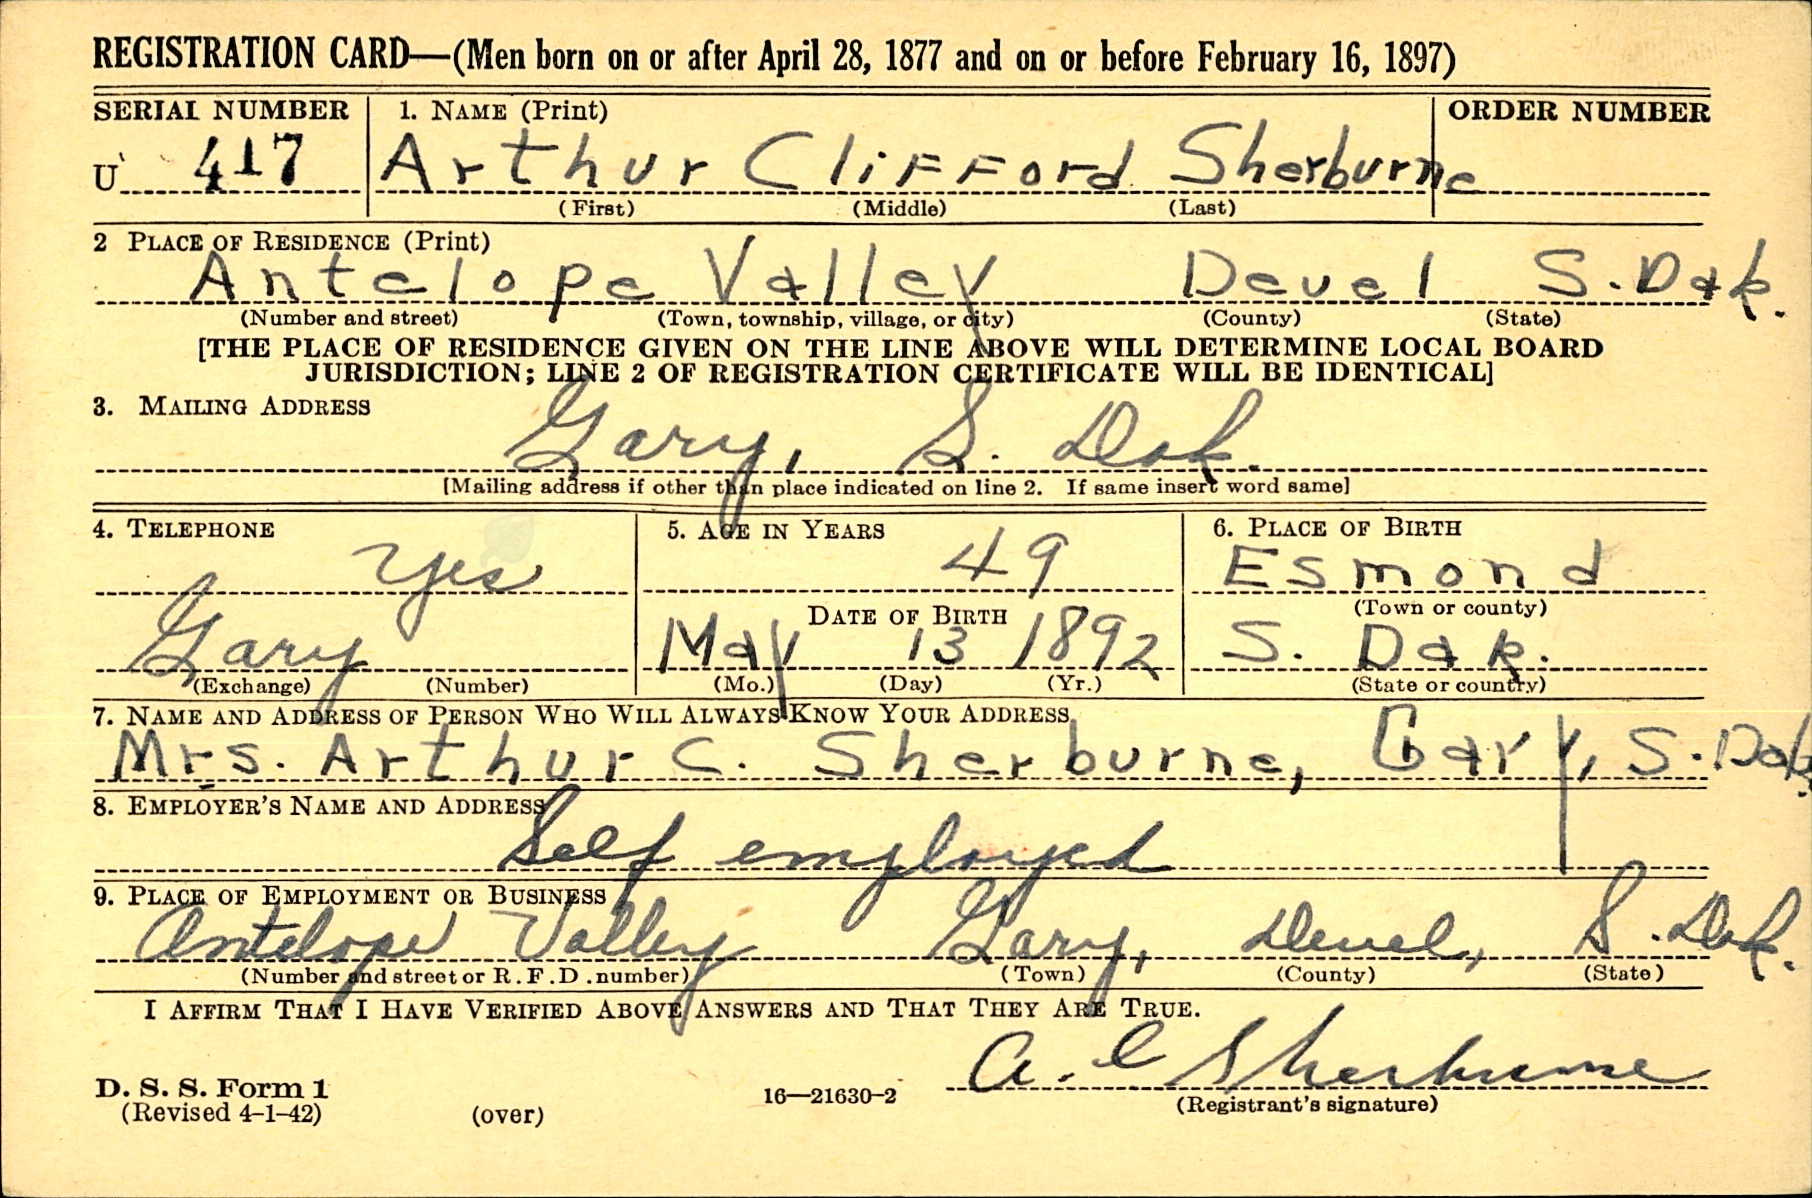 REGISTRATION CARD—(Men born on or after April 28, 1877 and on or before February 16, 1897)
SERIAL NUMBER 1. NAME (Print) ORDER NUMBER
U 417 Arthur Clifford Sherburne
(First) (Middle) (Last)
2 PLACE OF RESIDENCE (Print)
Antelope Valley Deuel S. Dak.
(Number and street) (Town, township, village, or city) (County) (State)
[THE PLACE OF RESIDENCE GIVEN ON THE LINE ABOVE WILL DETERMINE LOCAL BOARD
JURISDICTION; LINE 2 OF REGISTRATION CERTIFICATE WILL BE IDENTICAL]
3. MAILING ADDRESS
Gary, S. Dak.
[Mailing address if other than place indicated on line 2. If same insert word same]
4. TELEPHONE 5. AGE IN YEARS 6. PLACE OF BIRTH
Yes 49 Esmond
DATE OF BIRTH (Town or county)
Gary May 13 1892 S. Dak.
(Exchange) (Number) (Mo.) (Day) (Yr.) (State or country)
7. NAME AND ADDRESS OF PERSON WHO WILL ALWAYS KNOW YOUR ADDRESS
Mrs. Arthur C. Sherburne, Gary, S. Dak.
8. EMPLOYER'S NAME AND ADDRESS
Self employed
9. PLACE OF EMPLOYMENT OR BUSINESS
Antelope Valley Gary, Deuel, S. Dak.
(Number and street or R. F. D. number) (Town) (County) (State)
I AFFIRM THAT I HAVE VERIFIED ABOVE ANSWERS AND THAT THEY ARE TRUE.
A. C Sherburne
D. S. S. Form 1 16—21630-2 (Registrant's signature)
(Revised 4-1-42) (over)